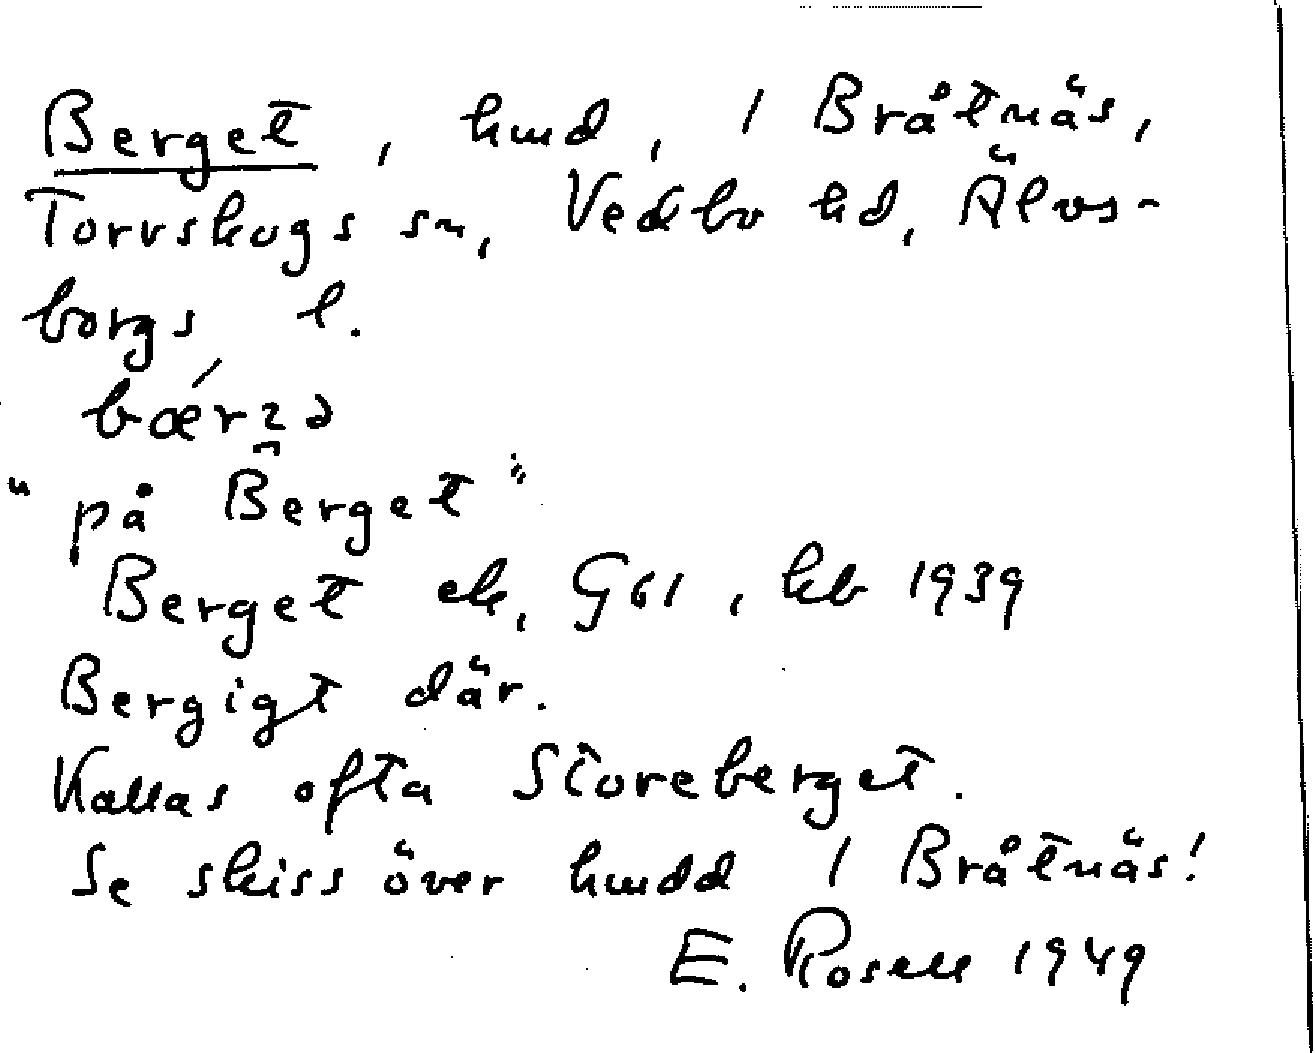 Berget, hmd, / Bråtnäs,
Torrskogs sn, Vedbo hd, Älvs-
borgs l.
bǽrʒə
"på Berget"
Berget ek, G61, kb 1939
Bergigt där.
Kallas ofta Storeberget.
Se skiss över hmdd / Bråtnäs!
E. Rosell 1949